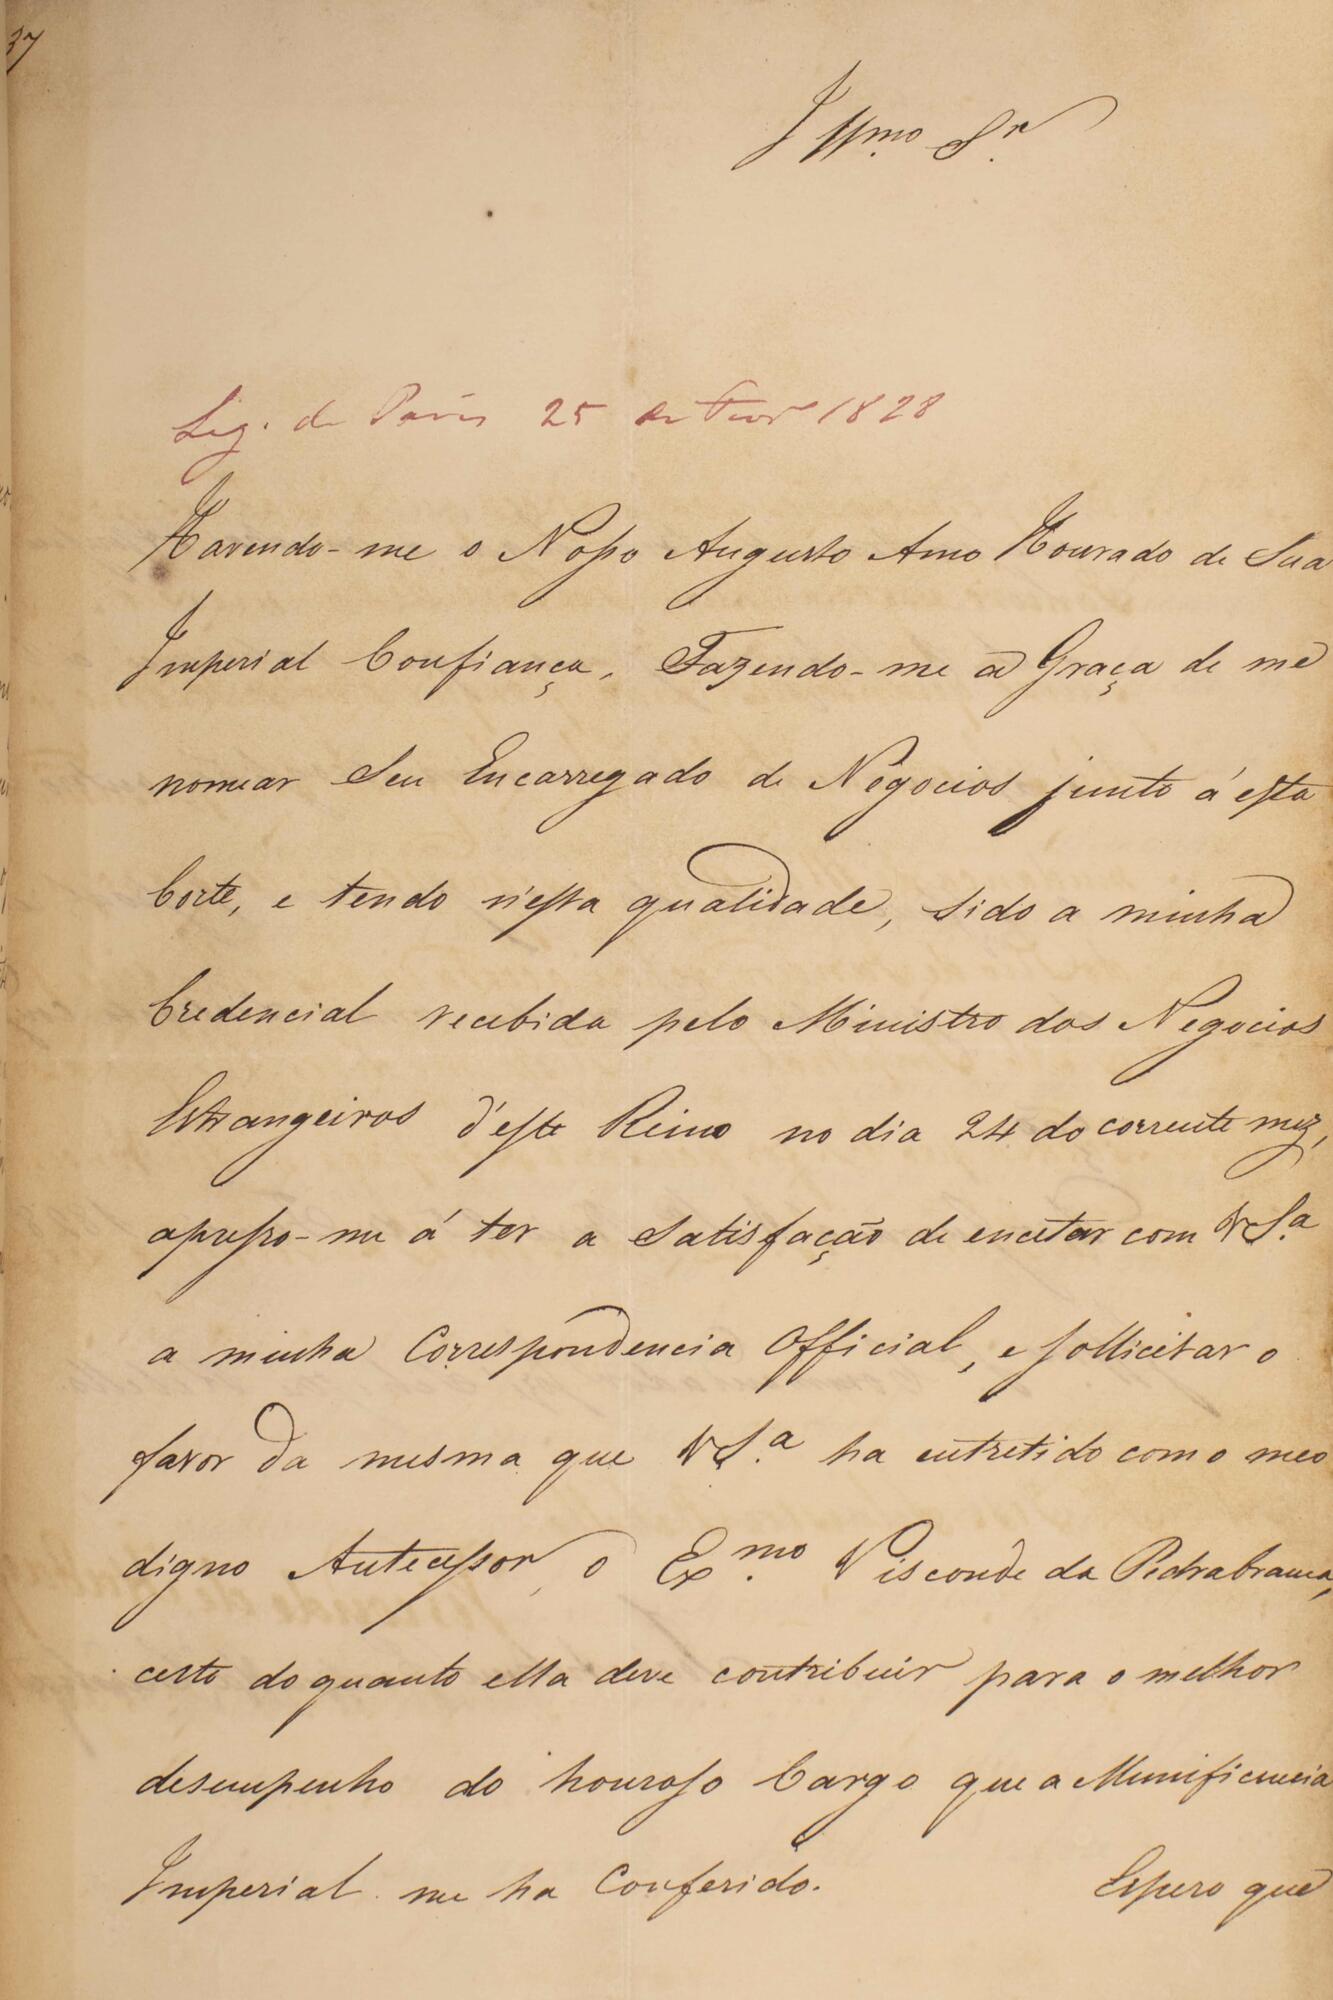 37
Illmo Sr
Leg. de Paris 25 de Fevr 1828
Havendo-me o Nosso Augusto Amo Honrado de Sua
Imperial Confiança, Fazendo-me a Graça de me
nomear Seu Encarregado de Negocios junto á esta
Corte, e tendo n'esta qualidade, sido a minha
Credencial recebida pelo Ministro dos Negocios
Estrangeiros d'este Reino no dia 24 do corrente mez,
apresso-me á ter a satisfação de encetar com V Sa
a minha Correspondencia Official, e sollicitar o
favor da mesma que V S.a ha entretido com o meo
digno Antecessor, o Exmo. Visconde da Pedrabranca,
certo do quanto ella deve contribuir para o melhor
desempenho do honroso Cargo que a Munificencia
Imperial me ha Conferido. Espero que